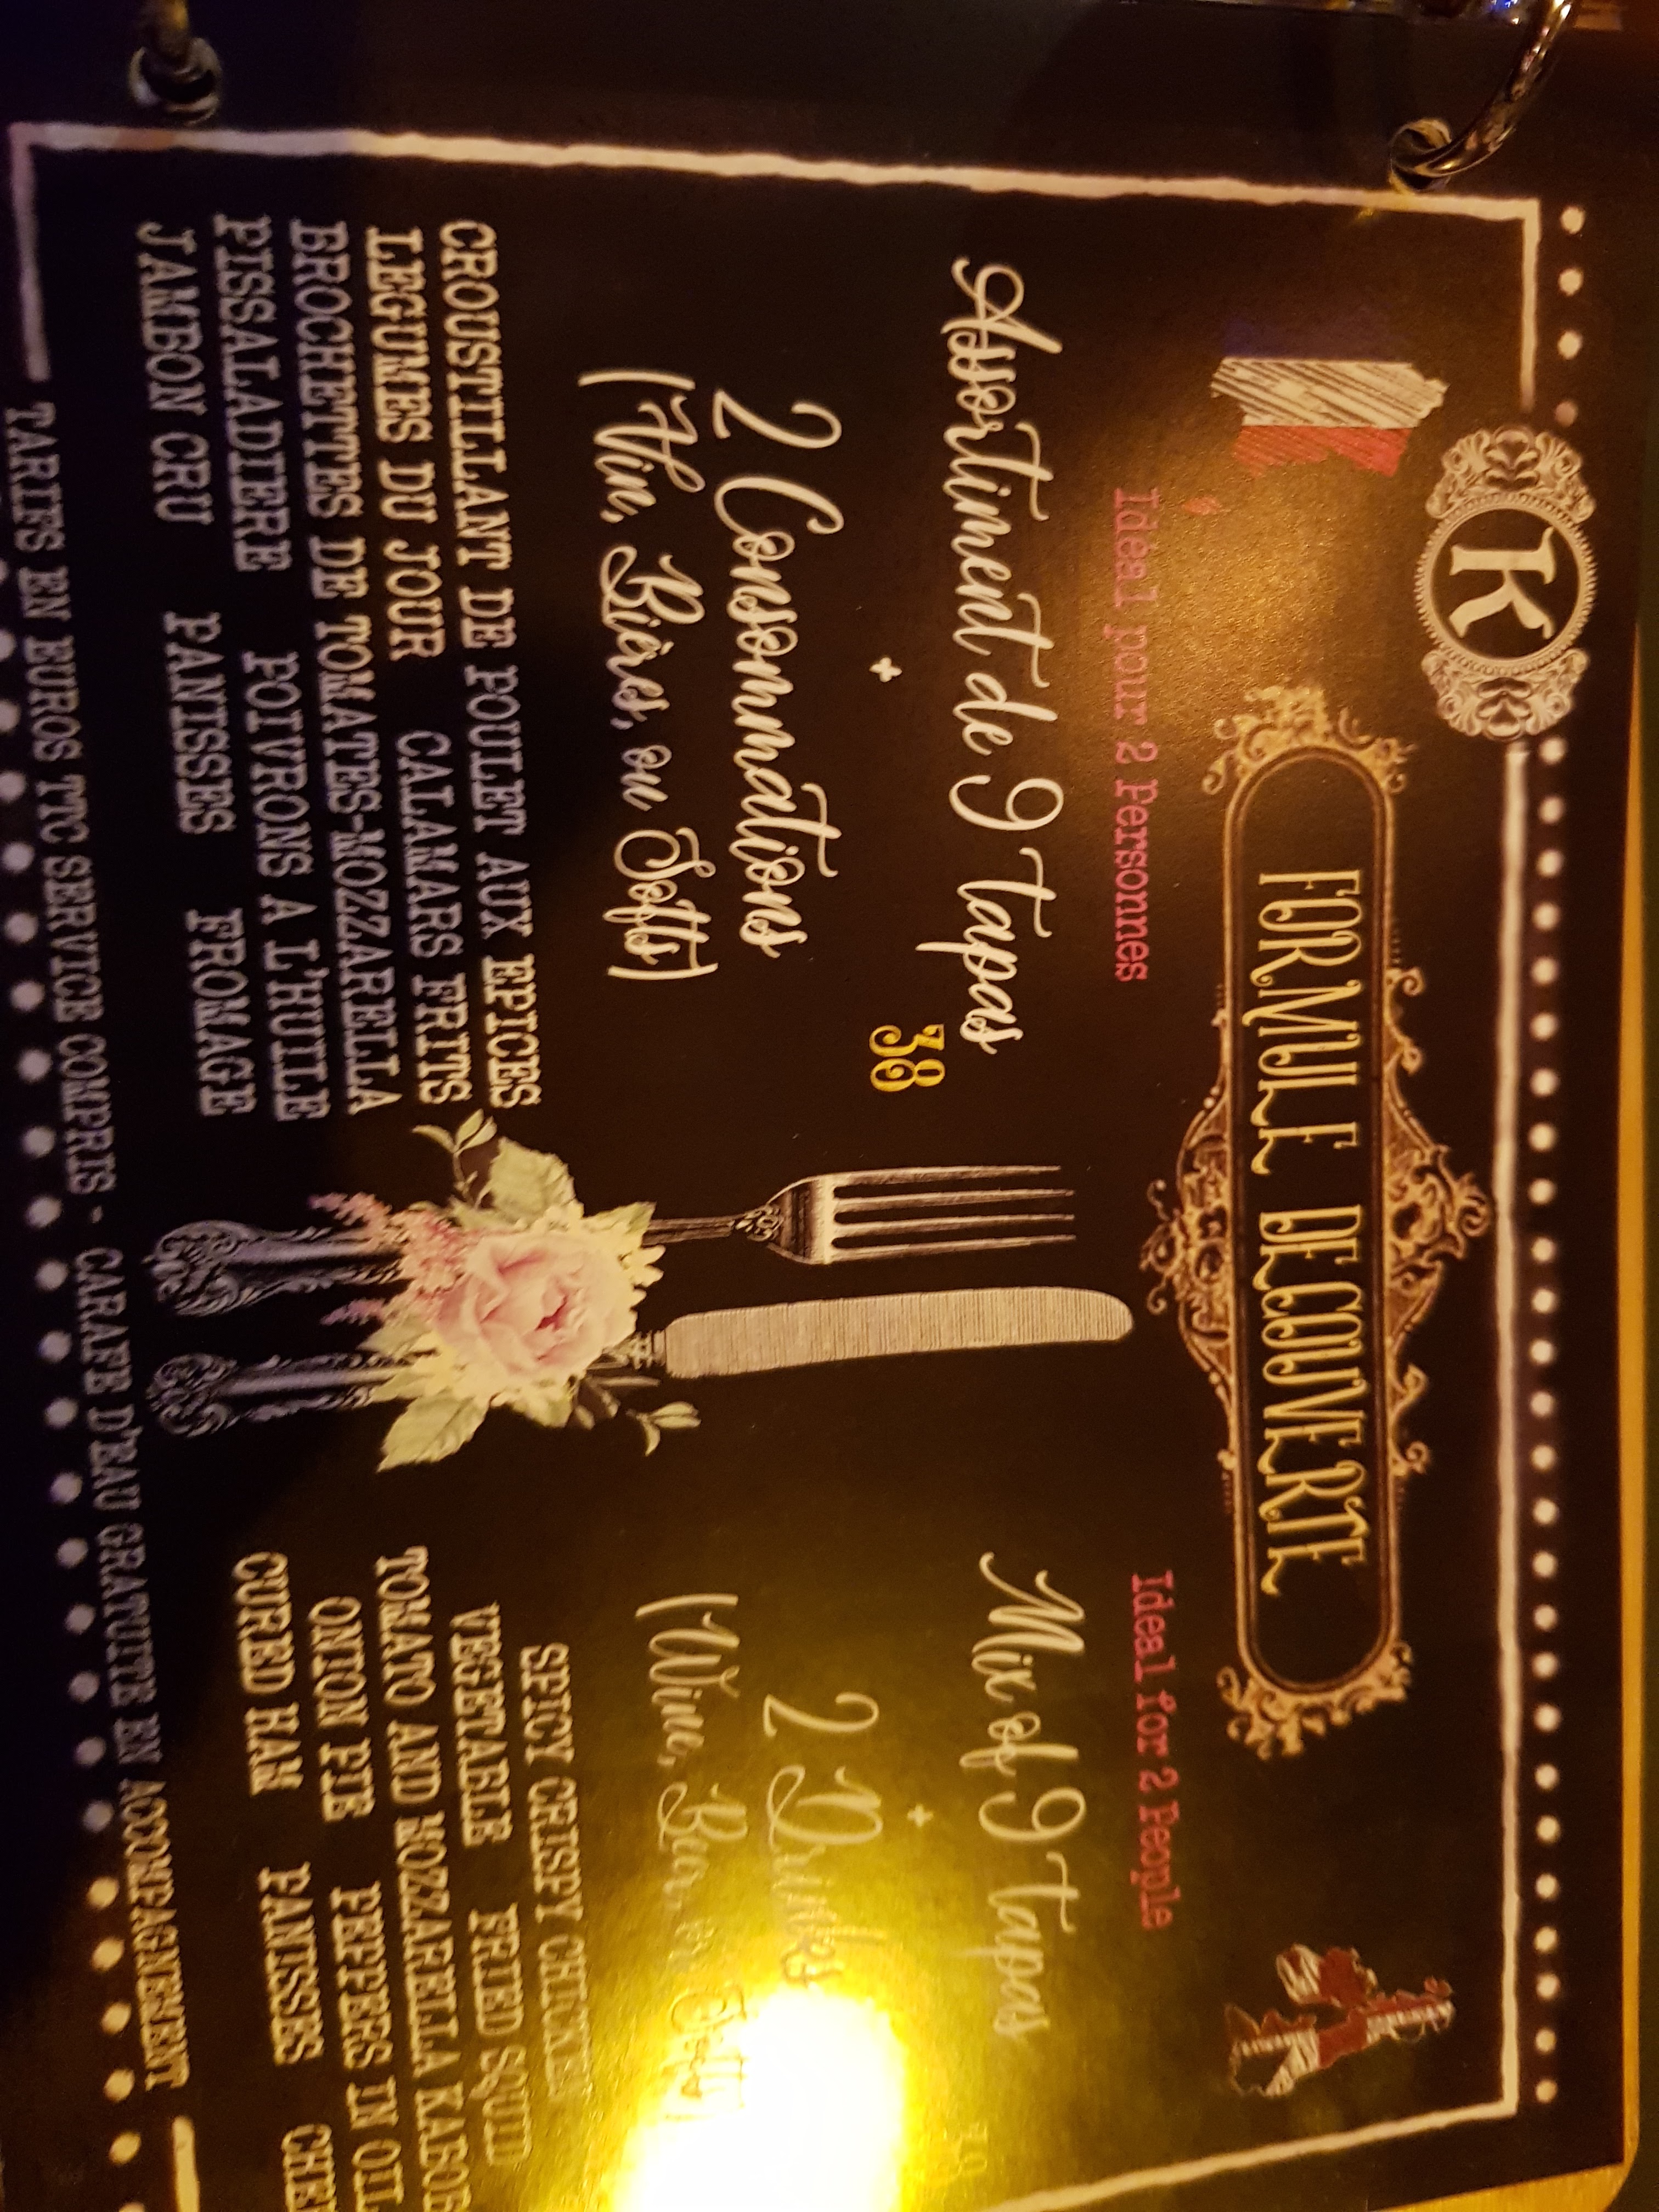 K
FORMULE DECOUVERTE
Idéal pour 2 Personnes
Assortiment de 9 tapas
+
38
2 Consommations
(Vin, Bières, ou Softs)
CROUSTILLANT DE POULET AUX EPICES
LEGUMES DU JOUR CALAMARS FRITS
BROCHETTES DE TOMATES-MOZZARELLA
PISSALADIERE POIVRONS A L'HUILE
JAMBON CRU PANISSES FROMAGE
Ideal for 2 People
Mix of 9 tapas
+
2 Drinks
(Wine, Beer, or Soft)
SPICY CRISPY CHICKEN
VEGETABLE FRIED SQUID
TOMATO AND MOZZARELLA KABOB
ONION PIE PEPPERS IN OIL
CURED HAM PANISSES CHEE
TARIFS EN EUROS TTC SERVICE COMPRIS - CARAFE D'EAU GRATUITE EN ACCOMPAGNEMENT